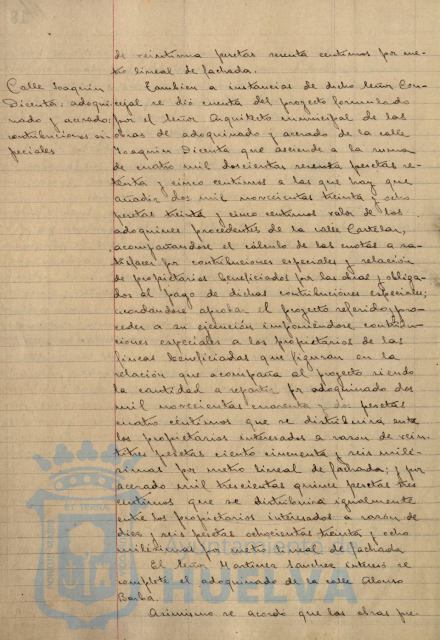 de veintiuna pesetas sesenta centimos por me-
tro lineal de fachada.
Calle Joaquin
Dicenta: adoqui-
nado y acerado:
contribuciones es-
peciales
Tambien a instancias de dicho señor Con-
cejal se dió cuenta del proyecto formulado
por el señor Arquitecto municipal de las
obras de adoquinado y acerado de la calle
Joaquin Dicenta que asciende a la suma
de cuatro mil doscientas sesenta pesetas se-
tenta y cinco centimos a las que hay que
añadir dos mil novecientas treinta y ocho
pesetas treinta y cinco centimos valor de los
adoquines procedentes de la calle Castelar,
acompañandose el cálculo de las cuotas a sa-
tisfacer por contribuciones especiales y relación
de propietarios beneficiados por las obras y obliga-
dos al pago de dichas contribuciones especiales;
acordandose aprobar el proyecto referido, pro-
ceder a su ejecución imponiendose contribu-
ciones especiales a los propietarios de las
fincas beneficiadas que figuran en la
relación que acompaña al proyecto siendo
la cantidad a repartir por adoquinado dos
mil novecientas cuarenta y dos pesetas
cuatro céntimos que se distribuira entre
los propietarios interesados a razon de vein-
titres pesetas ciento cincuenta y seis milé-
simas por metro lineal de fachada; y por
acerado mil trescientas quince pesetas tres
centimos que se distribuira igualmente
entre los propietarios interesados a razón de
diez y seis pesetas ochocientas treinta y ocho
milésimas por metro lineal de fachada
El señor Martinez Sanchez interesó se
complete el adoquinado de la calle Alonso
Barba.
Asimismo se acordó que las obras pre-
HUELVA